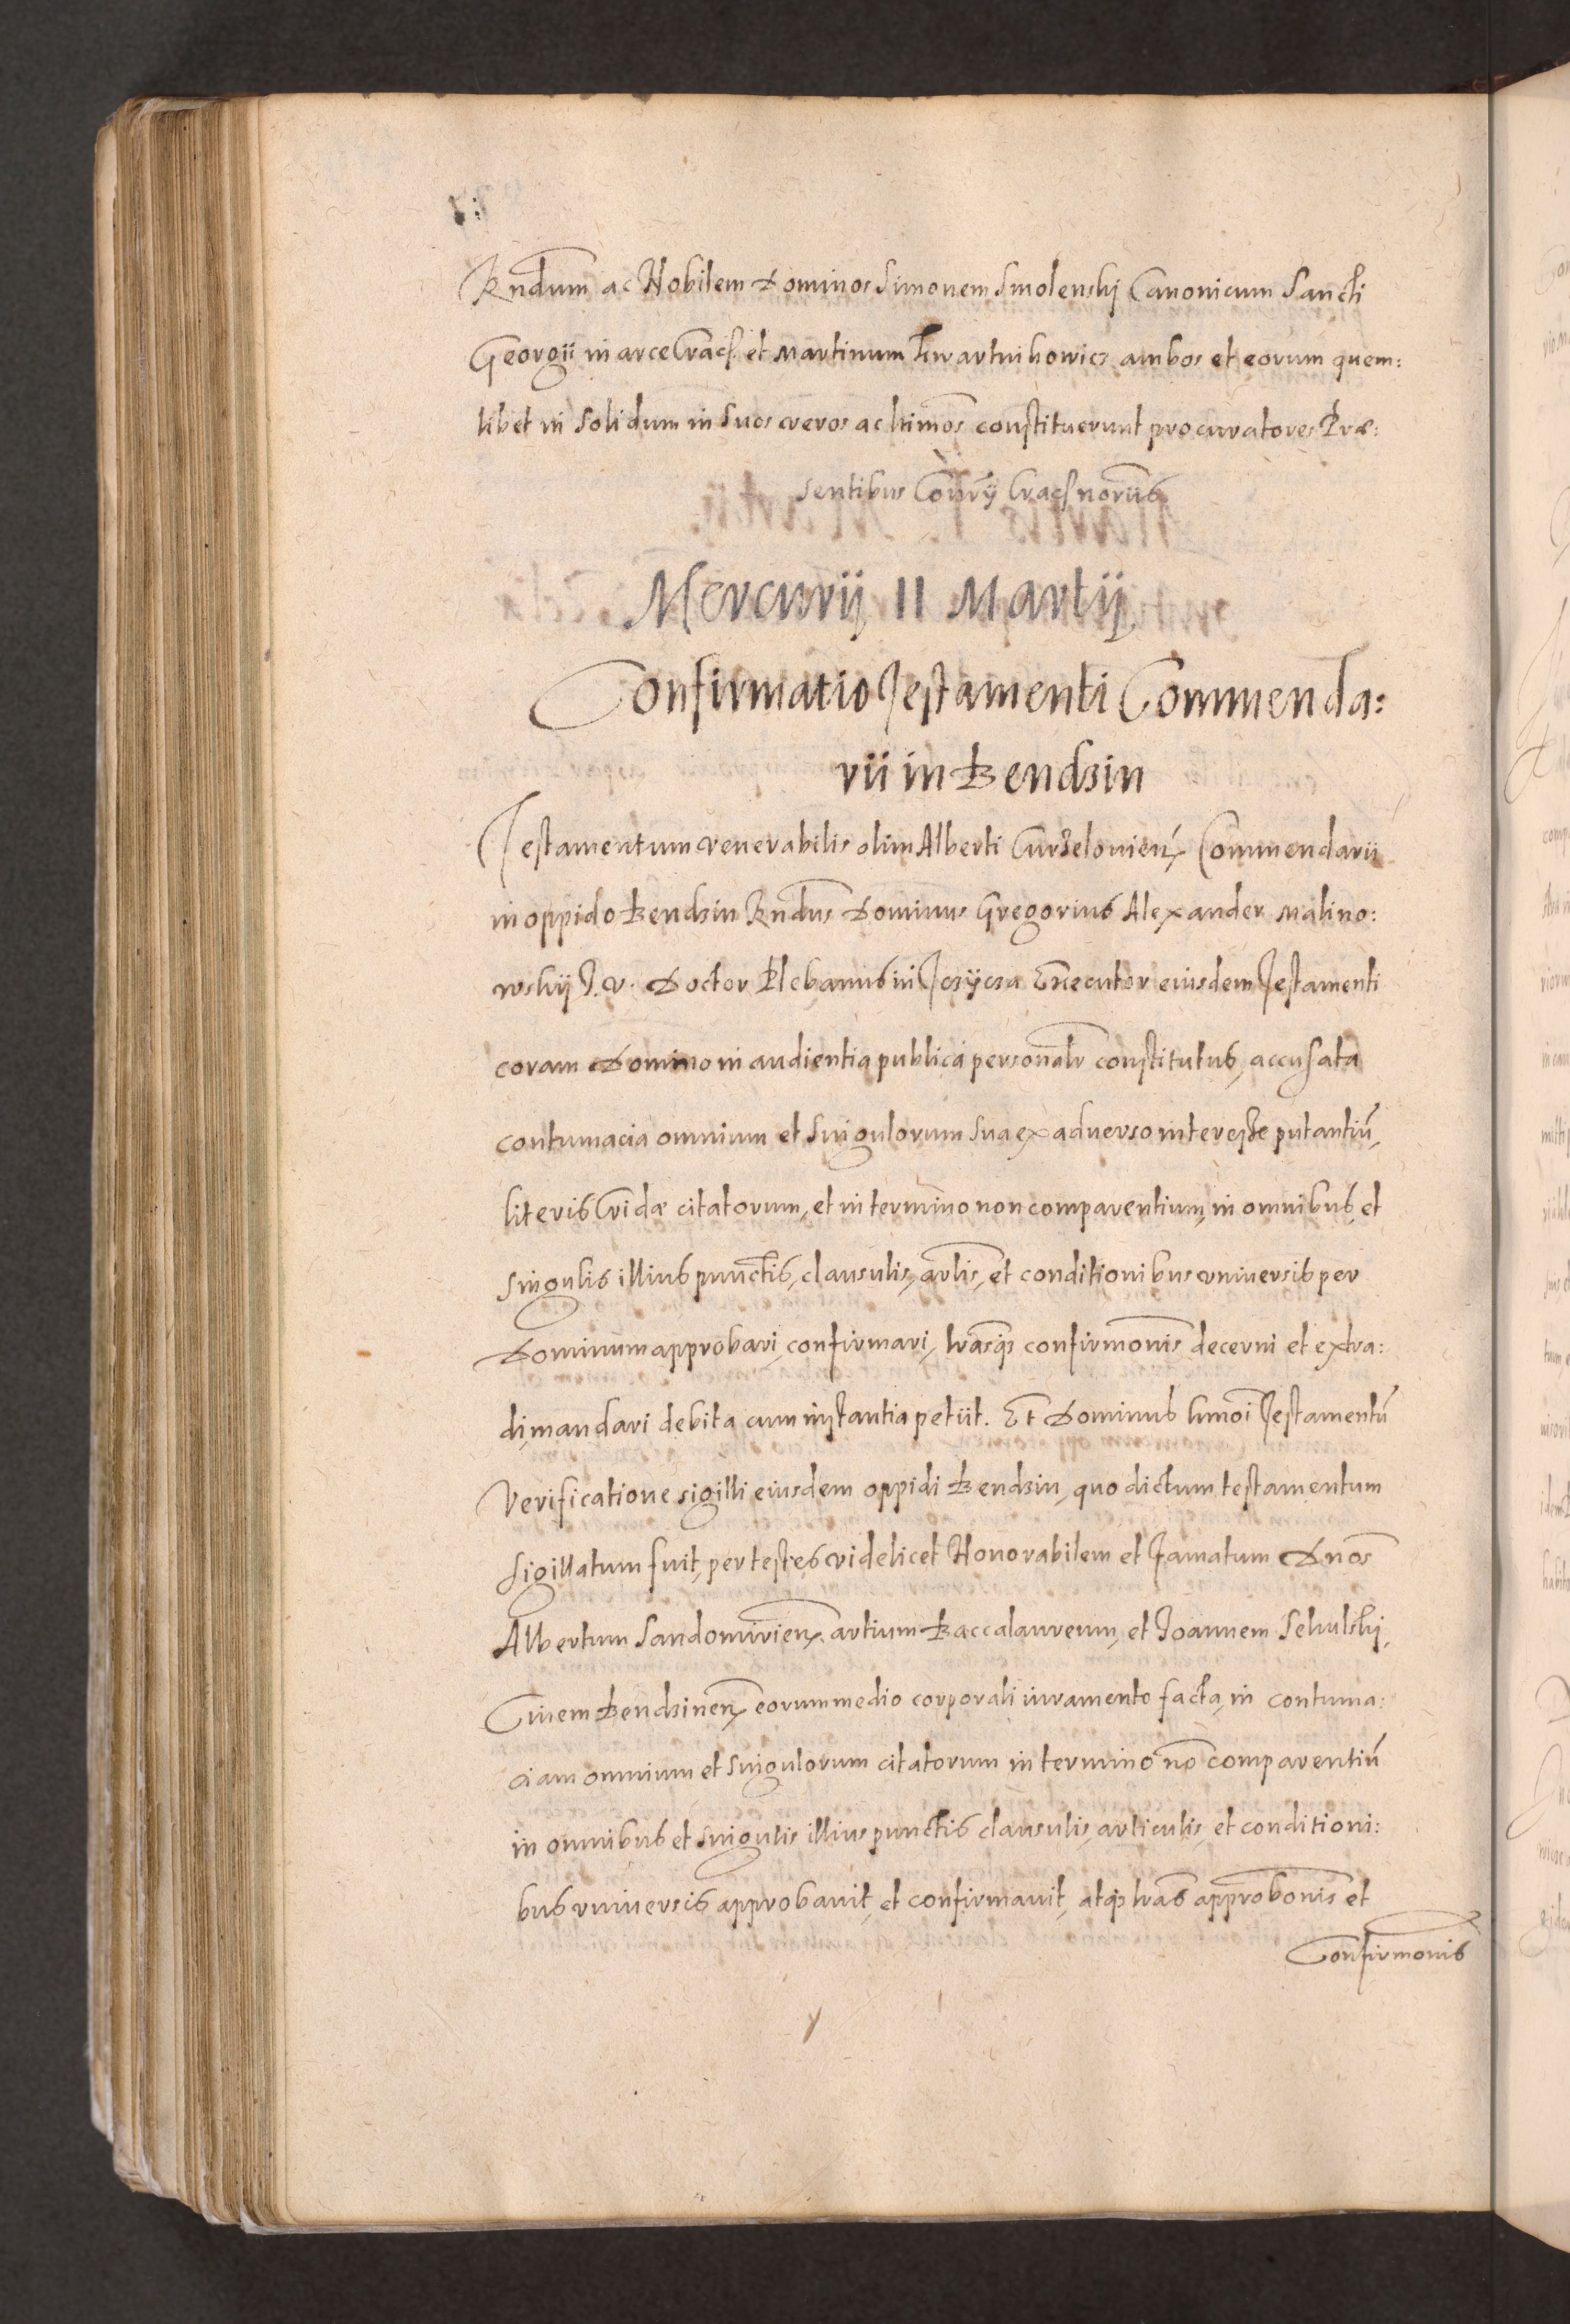 Rndum ac Nobilem Dominos Simonem Smolenskj Canonicum Sancti
Georgii in arce Cracs. et Martinum Kwartnikowicz ambos et eorum quem:
libet in solidum in suos veros ac ltimos constituerunt procuratores Præ:
sentibus Consrÿ Cracs notarus
Mercurÿ 11 Martÿ
Confirmatio Testamenti Commenda:
rii in Bendzin
Testamentum venerabilis olim Alberti Curzelonien. Commendarii
in oppido Bendzin Rndus Dominus Gregorius Alexander Malino:
wskÿ J. V. Doctor Plebanus in Executor eiusdem Testamenti
coram Domino in audientia publica personalr constitutus, accusata
contumacia omnium et singulorum sua ex aduerso interesse putantiū,
literis Cridæ citatorum, et in termino non comparentium, in omnibus, et
singulis illius punctis, clausulis, arlis, et conditionibus vniuersis per
Dominum approbari, confirmari, lrasq3 confirmonis decerni et extra:
di mandari debita cum instantia petiit. Et Dominus hmoi Testamentū
Verificatione sigilli eiusdem oppidi Bendzin, quo dictum testamentum
sigillatum fuit, per testes videlicet Honorabilem et Famatum Dnos
Albertum Sandomirien. artium Baccalaureum, et Joannem
Ciuem Bendzinen. eorum medio corporali iuramento facta, in contuma:
ciam omnium et singulorum citatorum in termino nō comparentiū
in omnibus et singulis illius punctis clausulis, articulis, et conditioni:
bus vniuersis approbauit, et confirmauit, atq3 lras approbonis et
Confirmonis